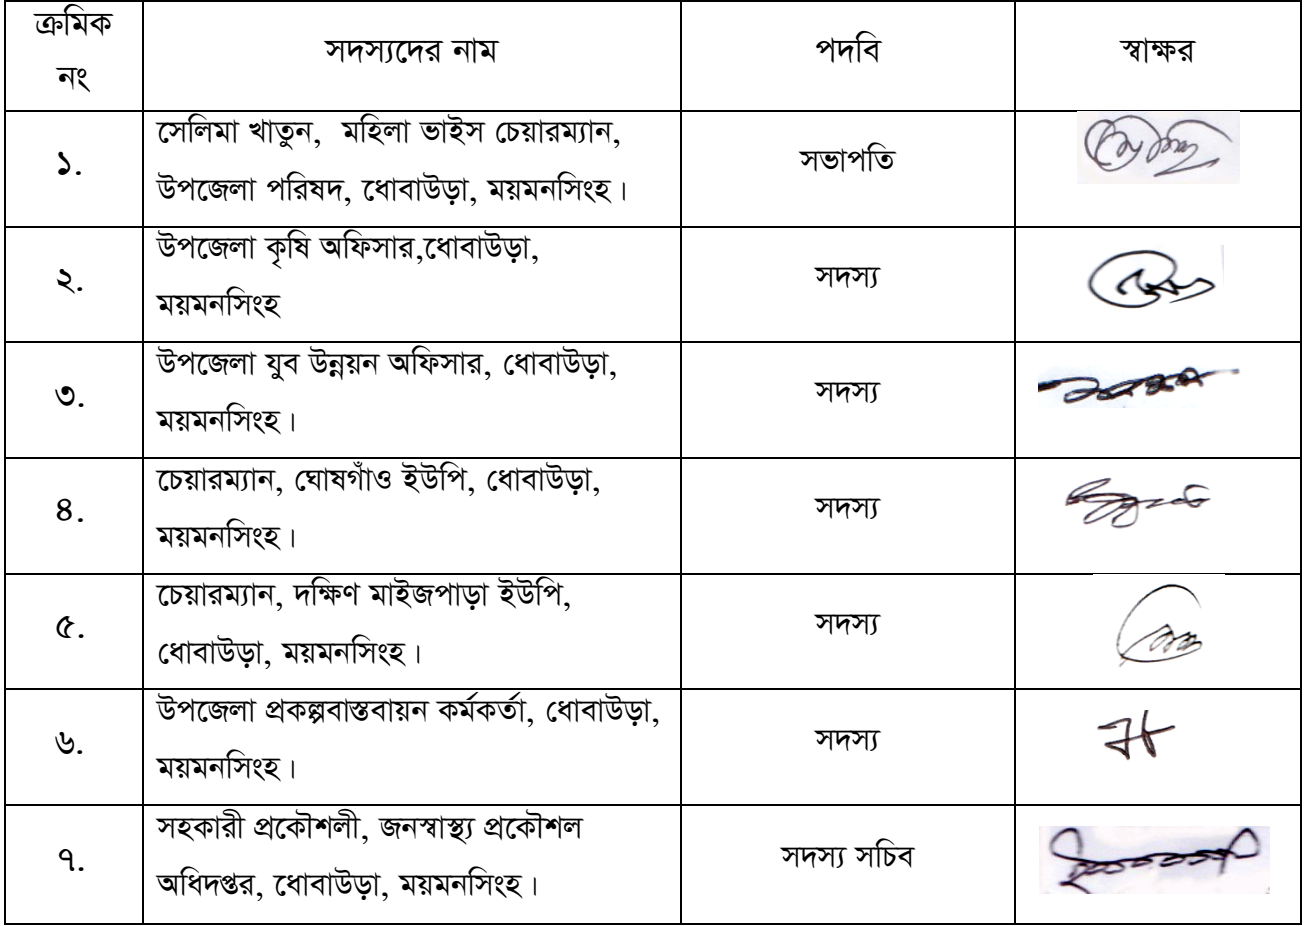 ক্রমিক
নং
সদস্যদের নাম
পদবি
স্বাক্ষর
১.
সেলিমা খাতুন, মহিলা ভাইস চেয়ারম্যান,
উপজেলা পরিষদ, ধোবাউড়া, ময়মনসিংহ।
সভাপতি
২.
উপজেলা কৃষি অফিসার,ধোবাউড়া,
ময়মনসিংহ
সদস্য
৩.
উপজেলা যুব উন্নয়ন অফিসার, ধোবাউড়া,
ময়মনসিংহ।
সদস্য
৪.
চেয়ারম্যান, ঘোষগাঁও ইউপি, ধোবাউড়া,
ময়মনসিংহ।
সদস্য
৫.
চেয়ারম্যান, দক্ষিণ মাইজপাড়া ইউপি,
ধোবাউড়া, ময়মনসিংহ।
সদস্য
৬.
উপজেলা প্রকল্পবাস্তবায়ন কর্মকর্তা, ধোবাউড়া,
ময়মনসিংহ।
সদস্য
৭.
সহকারী প্রকৌশলী, জনস্বাস্থ্য প্রকৌশল
অধিদপ্তর, ধোবাউড়া, ময়মনসিংহ।
সদস্য সচিব